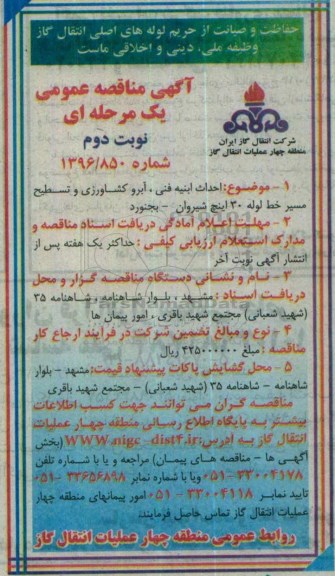 حفاظت و صیانت از حریم لوله های اصلی انتقال گاز
وظیفه ملی، دینی و اخلاقی ماست
آگهی مناقصه عمومی
یک مرحله ای
نوبت دوم
شماره ۱۳۹۶/۸۵۰
شرکت انتقال گاز ایران
منطقه چهار عملیات انتقال گاز
۱ - موضوع: احداث ابنیه فنی ، آبرو کشاورزی و تسطیح
مسیر خط لوله ۳۰ اینچ شیروان - بجنورد
۲ - مهلت اعلام آمادگی دریافت اسناد مناقصه و
مدارک استعلام ارزیابی کیفی : حداکثر یک هفته پس از
انتشار آگهی نوبت آخر
۳ - نام و نشانی دستگاه مناقصه گزار و محل
دریافت اسناد : مشهد ، بلوار شاهنامه ، شاهنامه ۳۵
(شهید شعبانی) مجتمع شهید باقری ، امور پیمان ها
۴ - نوع و مبالغ تضمین شرکت در فرآیند ارجاع کار
مناقصه : مبلغ ۴۲۵۰۰۰۰۰۰ ریال
۵ - محل گشایش پاکات پیشنهاد قیمت: مشهد - بلوار
شاهنامه - شاهنامه ۳۵ (شهید شعبانی) - مجتمع شهید باقری
مناقصه گران می توانند جهت کسب اطلاعات
بیشتر به پایگاه اطلاع رسانی منطقه چهار عملیات
انتقال گاز به آدرس: WWW.nigc_dist4.ir (بخش
آگهی ها - مناقصه های پیمان) مراجعه و یا با شماره تلفن
۳۳۰۰۴۱۷۸-۰۵۱ و یا با شماره نمابر ۳۲۶۵۶۸۹۸ -۰۵۱
تایید نمابر ۳۳۰۰۴۱۱۸ - ۰۵۱ امور پیمانهای منطقه چهار
عملیات انتقال گاز تماس حاصل فرمایند.
روابط عمومی منطقه چهار عملیات انتقال گاز